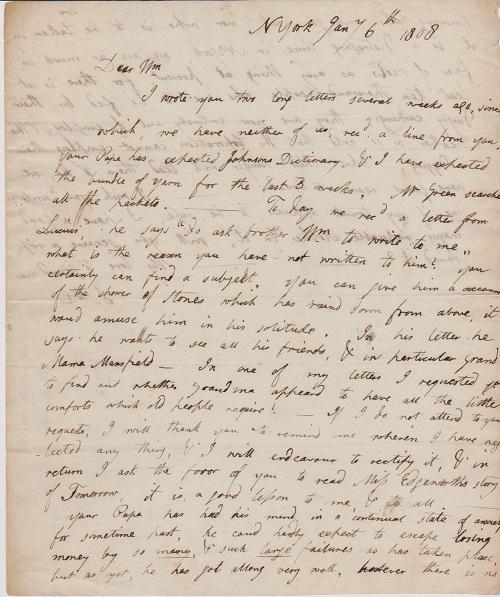 N York Jany 6th 1808
Dear Wm
I wrote you two long letters several weeks ago, since
which, we have neither of us, recd a line from you,
your Papa has expected Johnsons Dictionary, & I have expected
the bundle of yarn for the last 3 weeks, Mr Green searched
all the packets. — To day we recd a letter from
Lucius, he says "do ask brother Wm to write to me,"
what is the reason you have not written to him? you
certainly can find a subject, you can give him a
of the shower of Stones which has raind down from above, it
woud amuse him in his solitude. In his letter he
says he wants to see all his friends, & in particular Grand
Mama Mansfield — In one of my letters I requested you
to find out whether Grandma appeard to have all the little
comforts which old people require? — If I do not attend to your
requests, I will thank you to remind me wherein I have neg
lected any thing, & I will endeavour to rectify it, & in
return I ask the favor of you to read Miss Edgeworths story
of Tomorrow, it is a good lesson to me, & to all
your Papa has had his mind in a continual state of anxiety
for sometime past, he coud hardly expect to escape losing
money by so many, & such large failures as has taken place,
but as yet, he has got allong very well, however there is no